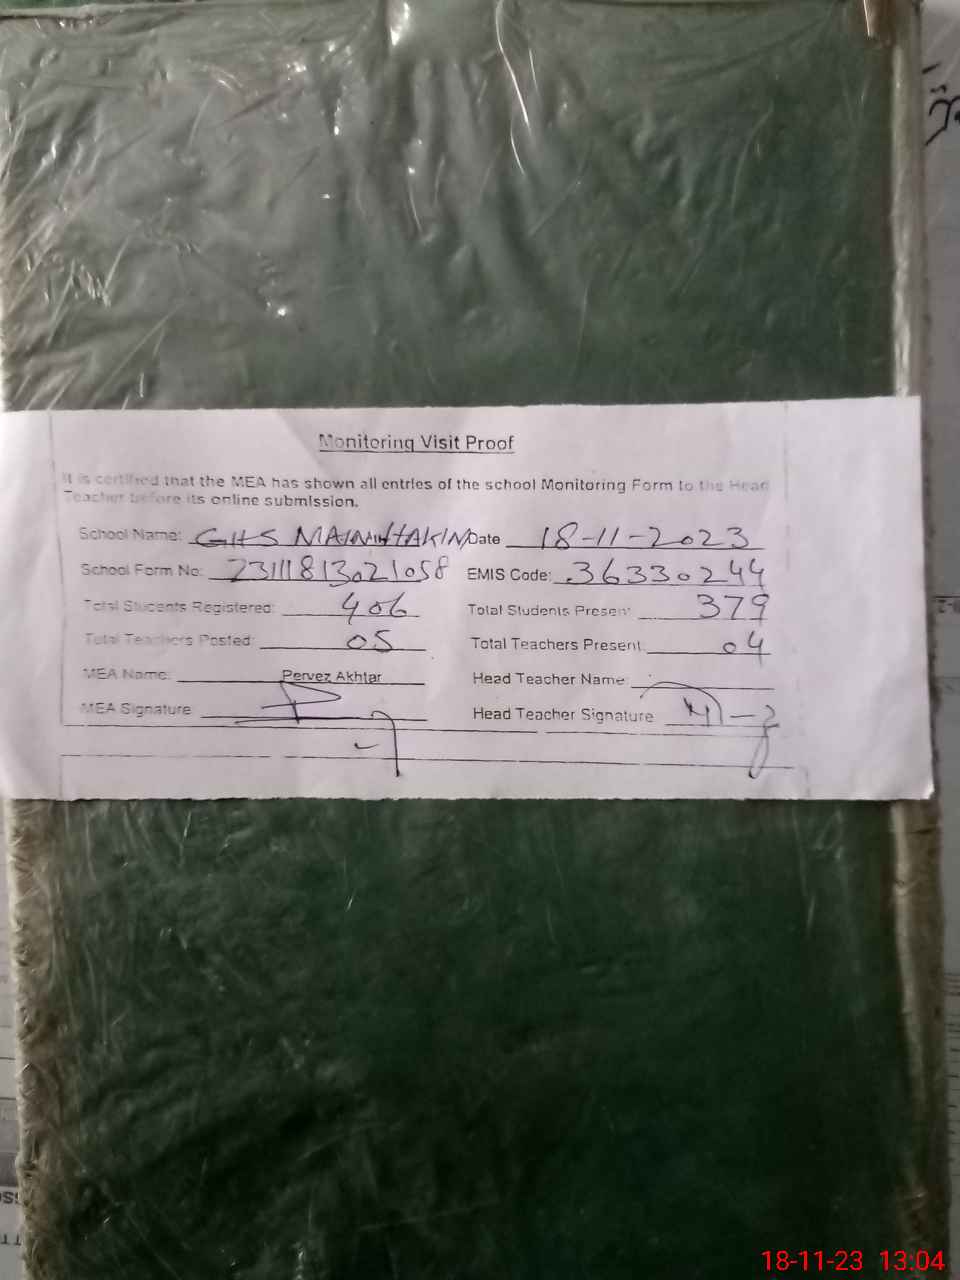 Monitoring Visit Proof
It is certified that the MEA has shown all entries of the school Monitoring Form to the Head
Teacher before its online submission.
School Name: GHS Date 18-11-2023
School Form No: 23111813021058 EMIS Code: 36330244
Total Students Registered: 406 Total Students Present: 379
Total Teachers Posted: 05 Total Teachers Present: 04
MEA Name: Pervez Akhtar Head Teacher Name:
MEA Signature Head Teacher Signature
18-11-23 13:04